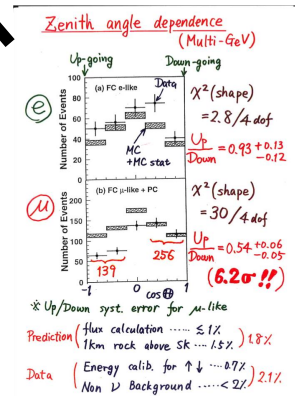 Zenith angle dependence
(Multi-GeV)
Up-going
Down-going
e
Number of Events
100
80
60
40
20
0
(a) FC e-like
Data
MC
+MC stat
χ² (shape)
= 2.8 / 4 dof
Up/Down = 0.93 +0.13 -0.12
μ
Number of Events
200
150
100
50
0
(b) FC μ-like + PC
139
256
-1 0 1
cosΘ
χ² (shape)
= 30 / 4 dof
Up/Down = 0.54 +0.06 -0.05
(6.2σ !!)
※ Up/Down syst. error for μ-like
Prediction ( flux calculation ..... ≲ 1%
1km rock above SK .... 1.5% ) 1.8%
Data ( Energy calib. for ↑↓ .... 0.7%
Non ν Background ..... < 2% ) 2.1%